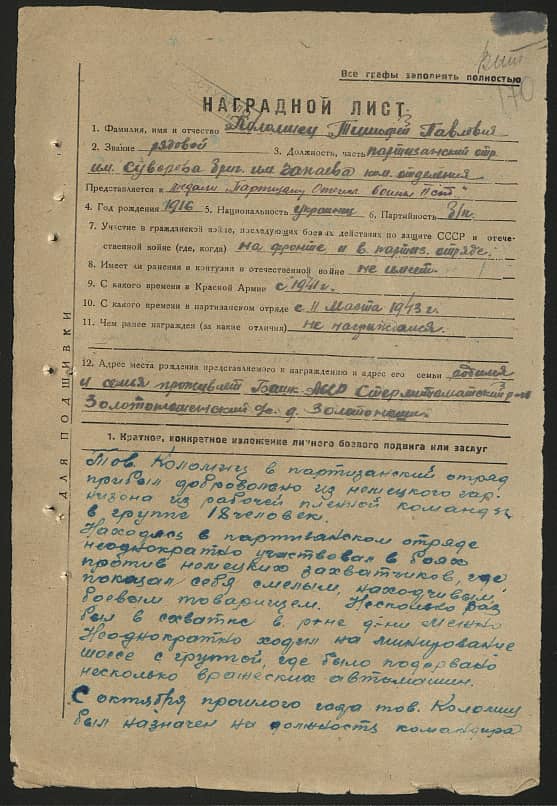 170
Все графы заполнять полностью
НАГРАДНОЙ ЛИСТ
1. Фамилия, имя и отчество Коломиец Тимофей Павлович
2. Звание рядовой 3. Должность, часть партизанский отр.
им. Суворова бриг. им. Чапаева ком. отделения
Представляется к медали "Партизану Отеч. войны II ст."
4. Год рождения 1916 5. Национальность украинец 6. Партийность б/п.
7. Участие в гражданской войне, последующих боевых действиях по защите СССР и отече-
ственной войне (где, когда) на фронте и в партиз. отряде.
8. Имеет ли ранения и контузии в отечественной войне не имеет.
9. С какого времени в Красной Армии с 1941 г.
10. С какого времени в партизанском отряде с 11 Марта 1943 г.
11. Чем ранее награжден (за какие отличия) не награждался.
12. Адрес места рождения представляемого к награждению и адрес его семьи родился
и семья проживает Башк. АССР Стерлитамакский р-н
д. Золотоношка
1. Краткое, конкретное изложение личного боевого подвига или заслуг
Тов. Коломиец в партизанский отряд
прибыл добровольно из немецкого гар-
низона из рабочей пленной команды
в группе 18 человек.
Находясь в партизанском отряде
неоднократно участвовал в боях
против немецких захватчиков, где
показал себя смелым, находчивым
боевым товарищем. Несколько раз
был в схватке в р-не
Неоднократно ходил на минирование
шоссе с группой, где было подорвано
несколько вражеских автомашин.
С октября прошлого года тов. Коломиец
был назначен на должность командира
ДЛЯ ПОДШИВКИ